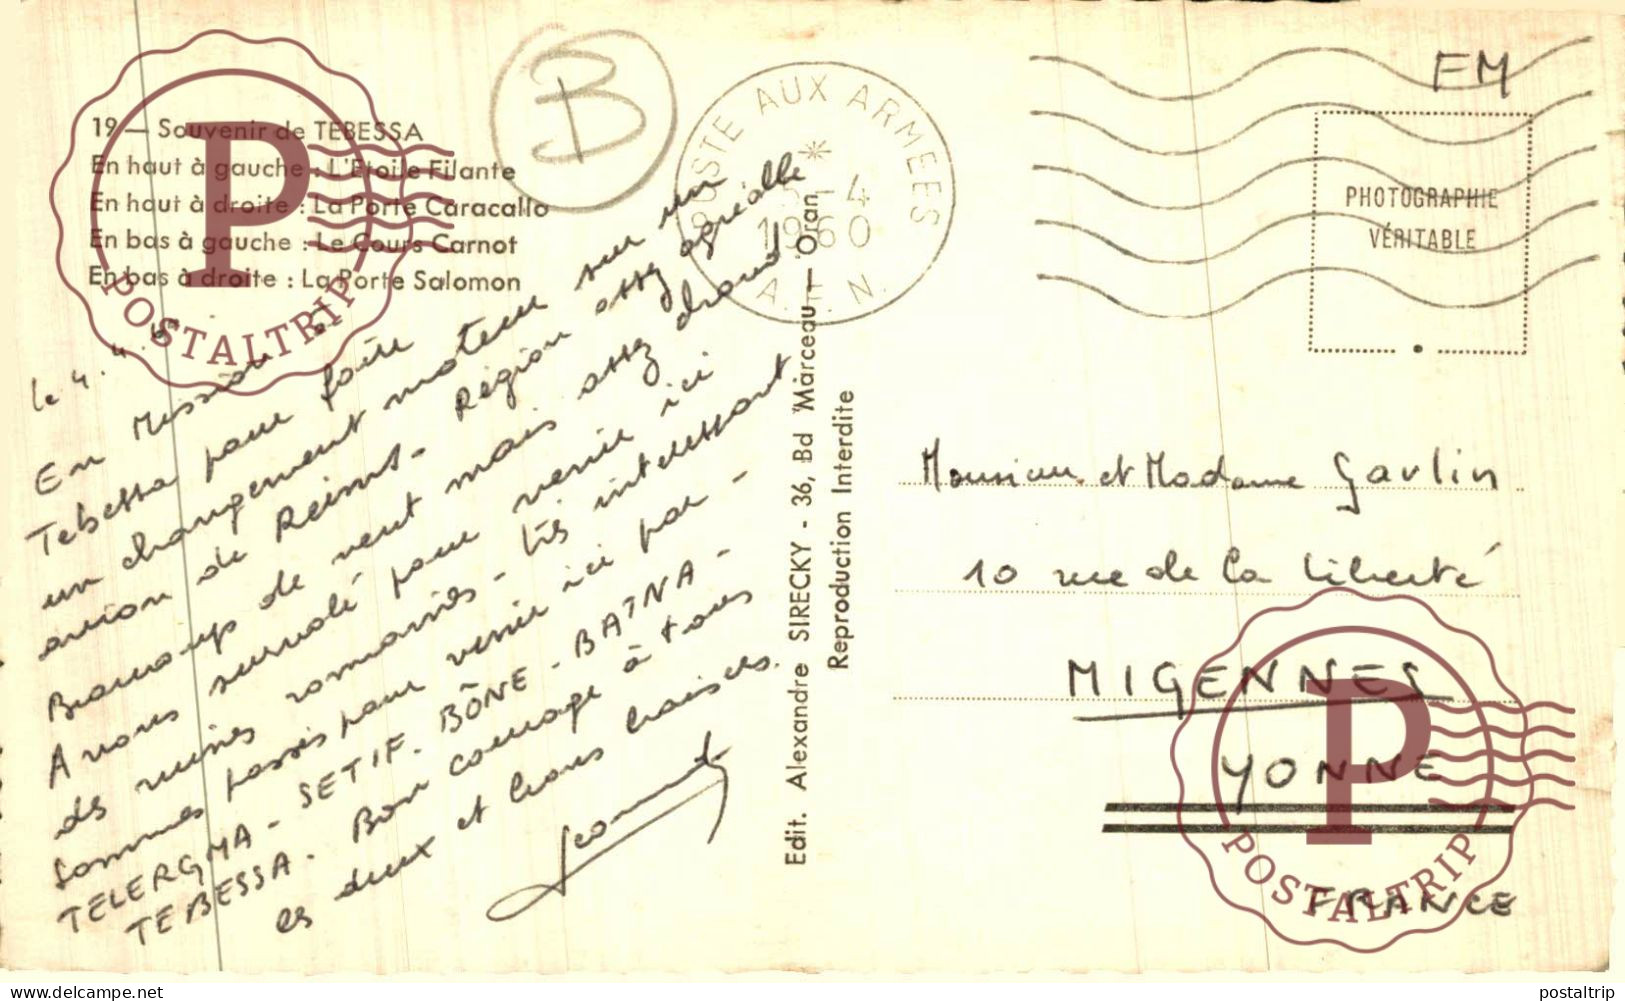 19 — Souvenir de TEBESSA
En haut à gauche : L'Etoile Filante
En haut à droite : La Porte Caracallo
En bas à gauche : Le Cours Carnot
En bas à droite : La Porte Salomon
B
POSTE AUX ARMEES
5-4
1960
A.F.N.
FM
PHOTOGRAPHIE
VÉRITABLE
le 4.4.
En Mission à
Tebessa pour faire
un changement moteur sur un
avion de Reims. Région assez agréable
Beaucoup de vent mais assez chaud
A nous survolé pour venir ici
des ruines romaines - très interessant
sommes passés pour venir ici par -
TELERGMA - SETIF - BÔNE - BATNA -
TEBESSA. Bon courage à tous
les deux et bons baisers.
Edit. Alexandre SIRECKY - 36, Bd Marceau — Oran
Reproduction Interdite
Monsieur et Madame Gavlin
10 rue de la Liberté
MIGENNES
YONNE
FRANCE
P
POSTALTRIP
P
POSTALTRIP
www.delcampe.net
postaltrip